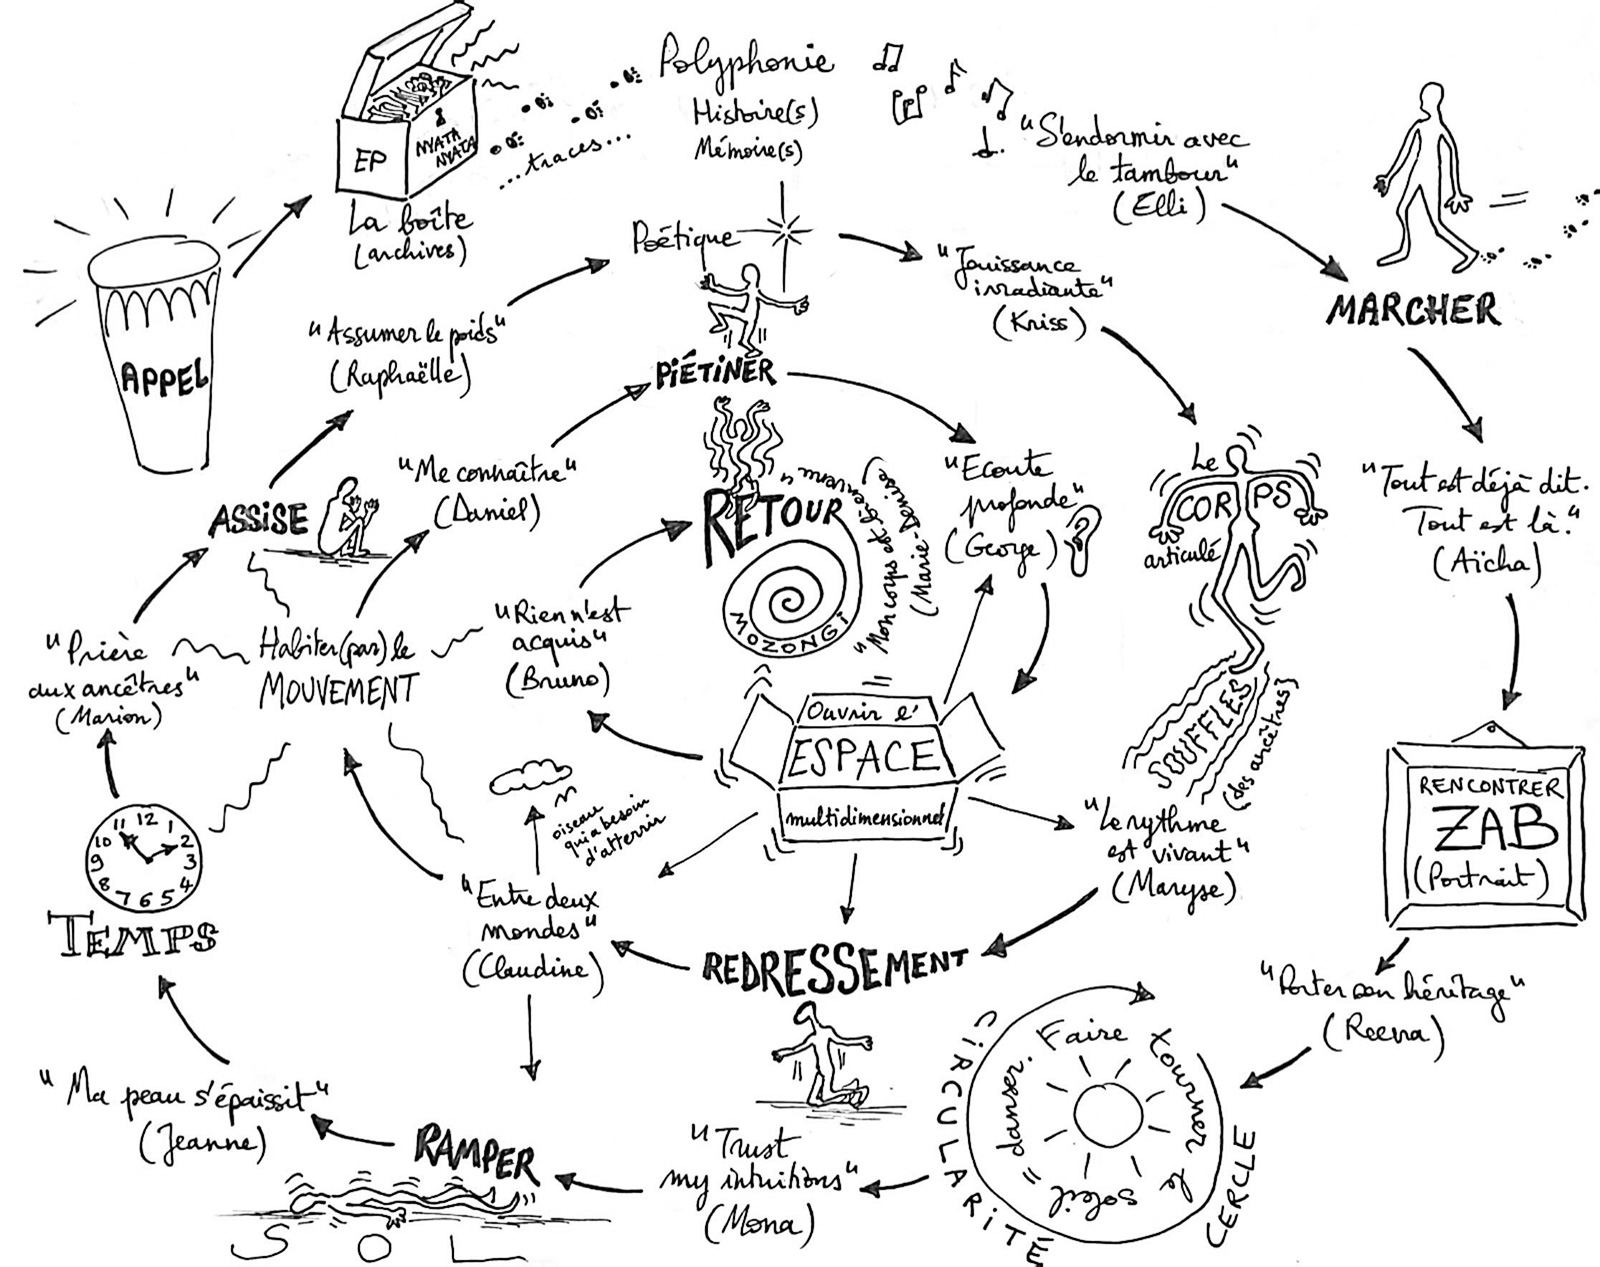 Polyphonie
Histoire(s)
Mémoire(s)
EP
NYATA
NYATA
...traces...
La boîte
(archives)
APPEL
"S'endormir avec
le tambour"
(Elli)
MARCHER
Poétique
"Jouissance
irradiante"
(Kriss)
"Assumer le poids"
(Raphaëlle)
PIÉTINER
ASSISE
"Me connaître"
(Daniel)
RETOUR
MOZONGI
"Mon corps est bienvenu"
(Marie-Denise)
"Ecoute
profonde"
(George)
Le
CORPS
articulé
"Tout est déjà dit.
Tout est là."
(Aïcha)
"Prière
aux ancêtres"
(Marion)
Habiter (par) le
MOUVEMENT
"Rien n'est
acquis"
(Bruno)
Ouvrir l'
ESPACE
multidimensionnel
SOUFFLES
(des ancêtres)
RENCONTRER
ZAB
(Portrait)
12
1
2
3
4
5
6
7
8
9
10
11
TEMPS
oiseau
qui a besoin
d'atterrir
"Entre deux
mondes"
(Claudine)
"Le rythme
est vivant"
(Maryse)
REDRESSEMENT
"Porter son héritage"
(Reena)
Faire tourner le soleil = danser.
CIRCULARITÉ
CERCLE
"Ma peau s'épaissit"
(Jeanne)
RAMPER
SOL
"Trust
my intuitions"
(Mona)